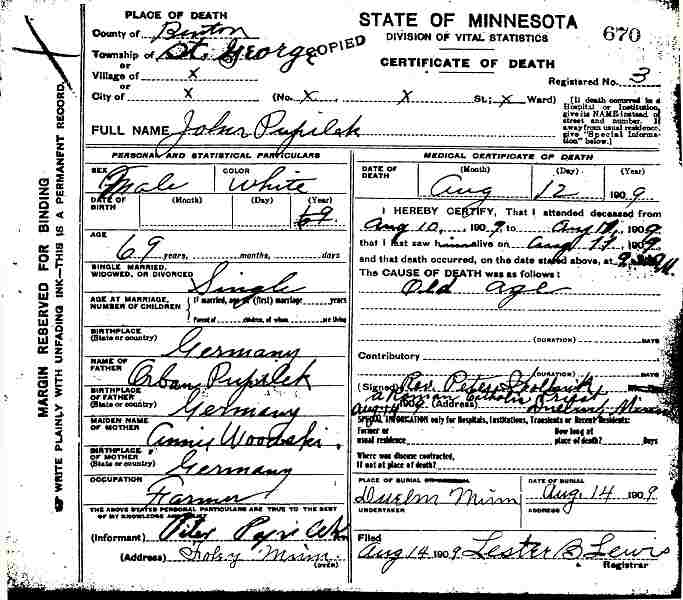 PLACE OF DEATH
County of Benton
Township of St. George
or
Village of x
or
City of x (No. x x St; x Ward)
COPIED
STATE OF MINNESOTA
DIVISION OF VITAL STATISTICS
670
CERTIFICATE OF DEATH
Registered No. 3
(If death occurred in a Hospital or Institution, give its NAME instead of street and number. If away from usual residence, give "Special Information" below.)
FULL NAME John Pupilek
MARGIN RESERVED FOR BINDING
WRITE PLAINLY WITH UNFADING INK—THIS IS A PERMANENT RECORD.
PERSONAL AND STATISTICAL PARTICULARS
SEX Male COLOR White
DATE OF BIRTH (Month) (Day) (Year)
69
AGE
69 years, months, days
SINGLE MARRIED, WIDOWED, OR DIVORCED Single
AGE AT MARRIAGE, NUMBER OF CHILDREN
If married, age at (first) marriage years
Parent of children, of whom are living
BIRTHPLACE (State or country) Germany
NAME OF FATHER Orban Pupilek
BIRTHPLACE OF FATHER (State or country) Germany
MAIDEN NAME OF MOTHER Annie
BIRTHPLACE OF MOTHER (State or country) Germany
OCCUPATION Farmer
THE ABOVE STATED PERSONAL PARTICULARS ARE TRUE TO THE BEST OF MY KNOWLEDGE AND BELIEF
(Informant) Peter
(Address) Foley Minn.
(OVER)
MEDICAL CERTIFICATE OF DEATH
DATE OF DEATH (Month) (Day) (Year)
Aug 12 1909
I HEREBY CERTIFY, That I attended deceased from
Aug 10, 1909 to Aug 1909
that I last saw him alive on Aug 11 1909
and that death occurred, on the date stated above, at M.
The CAUSE OF DEATH was as follows:
Old age
(DURATION) DAYS
Contributory
(DURATION) DAYS
(Signed) Rev. Peter
a Roman Catholic Priest
Aug 14 1909 (Address) Duelm, Minn
SPECIAL INFORMATION only for Hospitals, Institutions, Transients or Recent Residents:
Former or usual residence
How long at place of death? Days
Where was disease contracted, if not at place of death?
PLACE OF BURIAL Duelm Minn
DATE OF BURIAL Aug. 14 1909
UNDERTAKER
ADDRESS
Filed
Aug 14 1909 Lester B. Lewis
Registrar